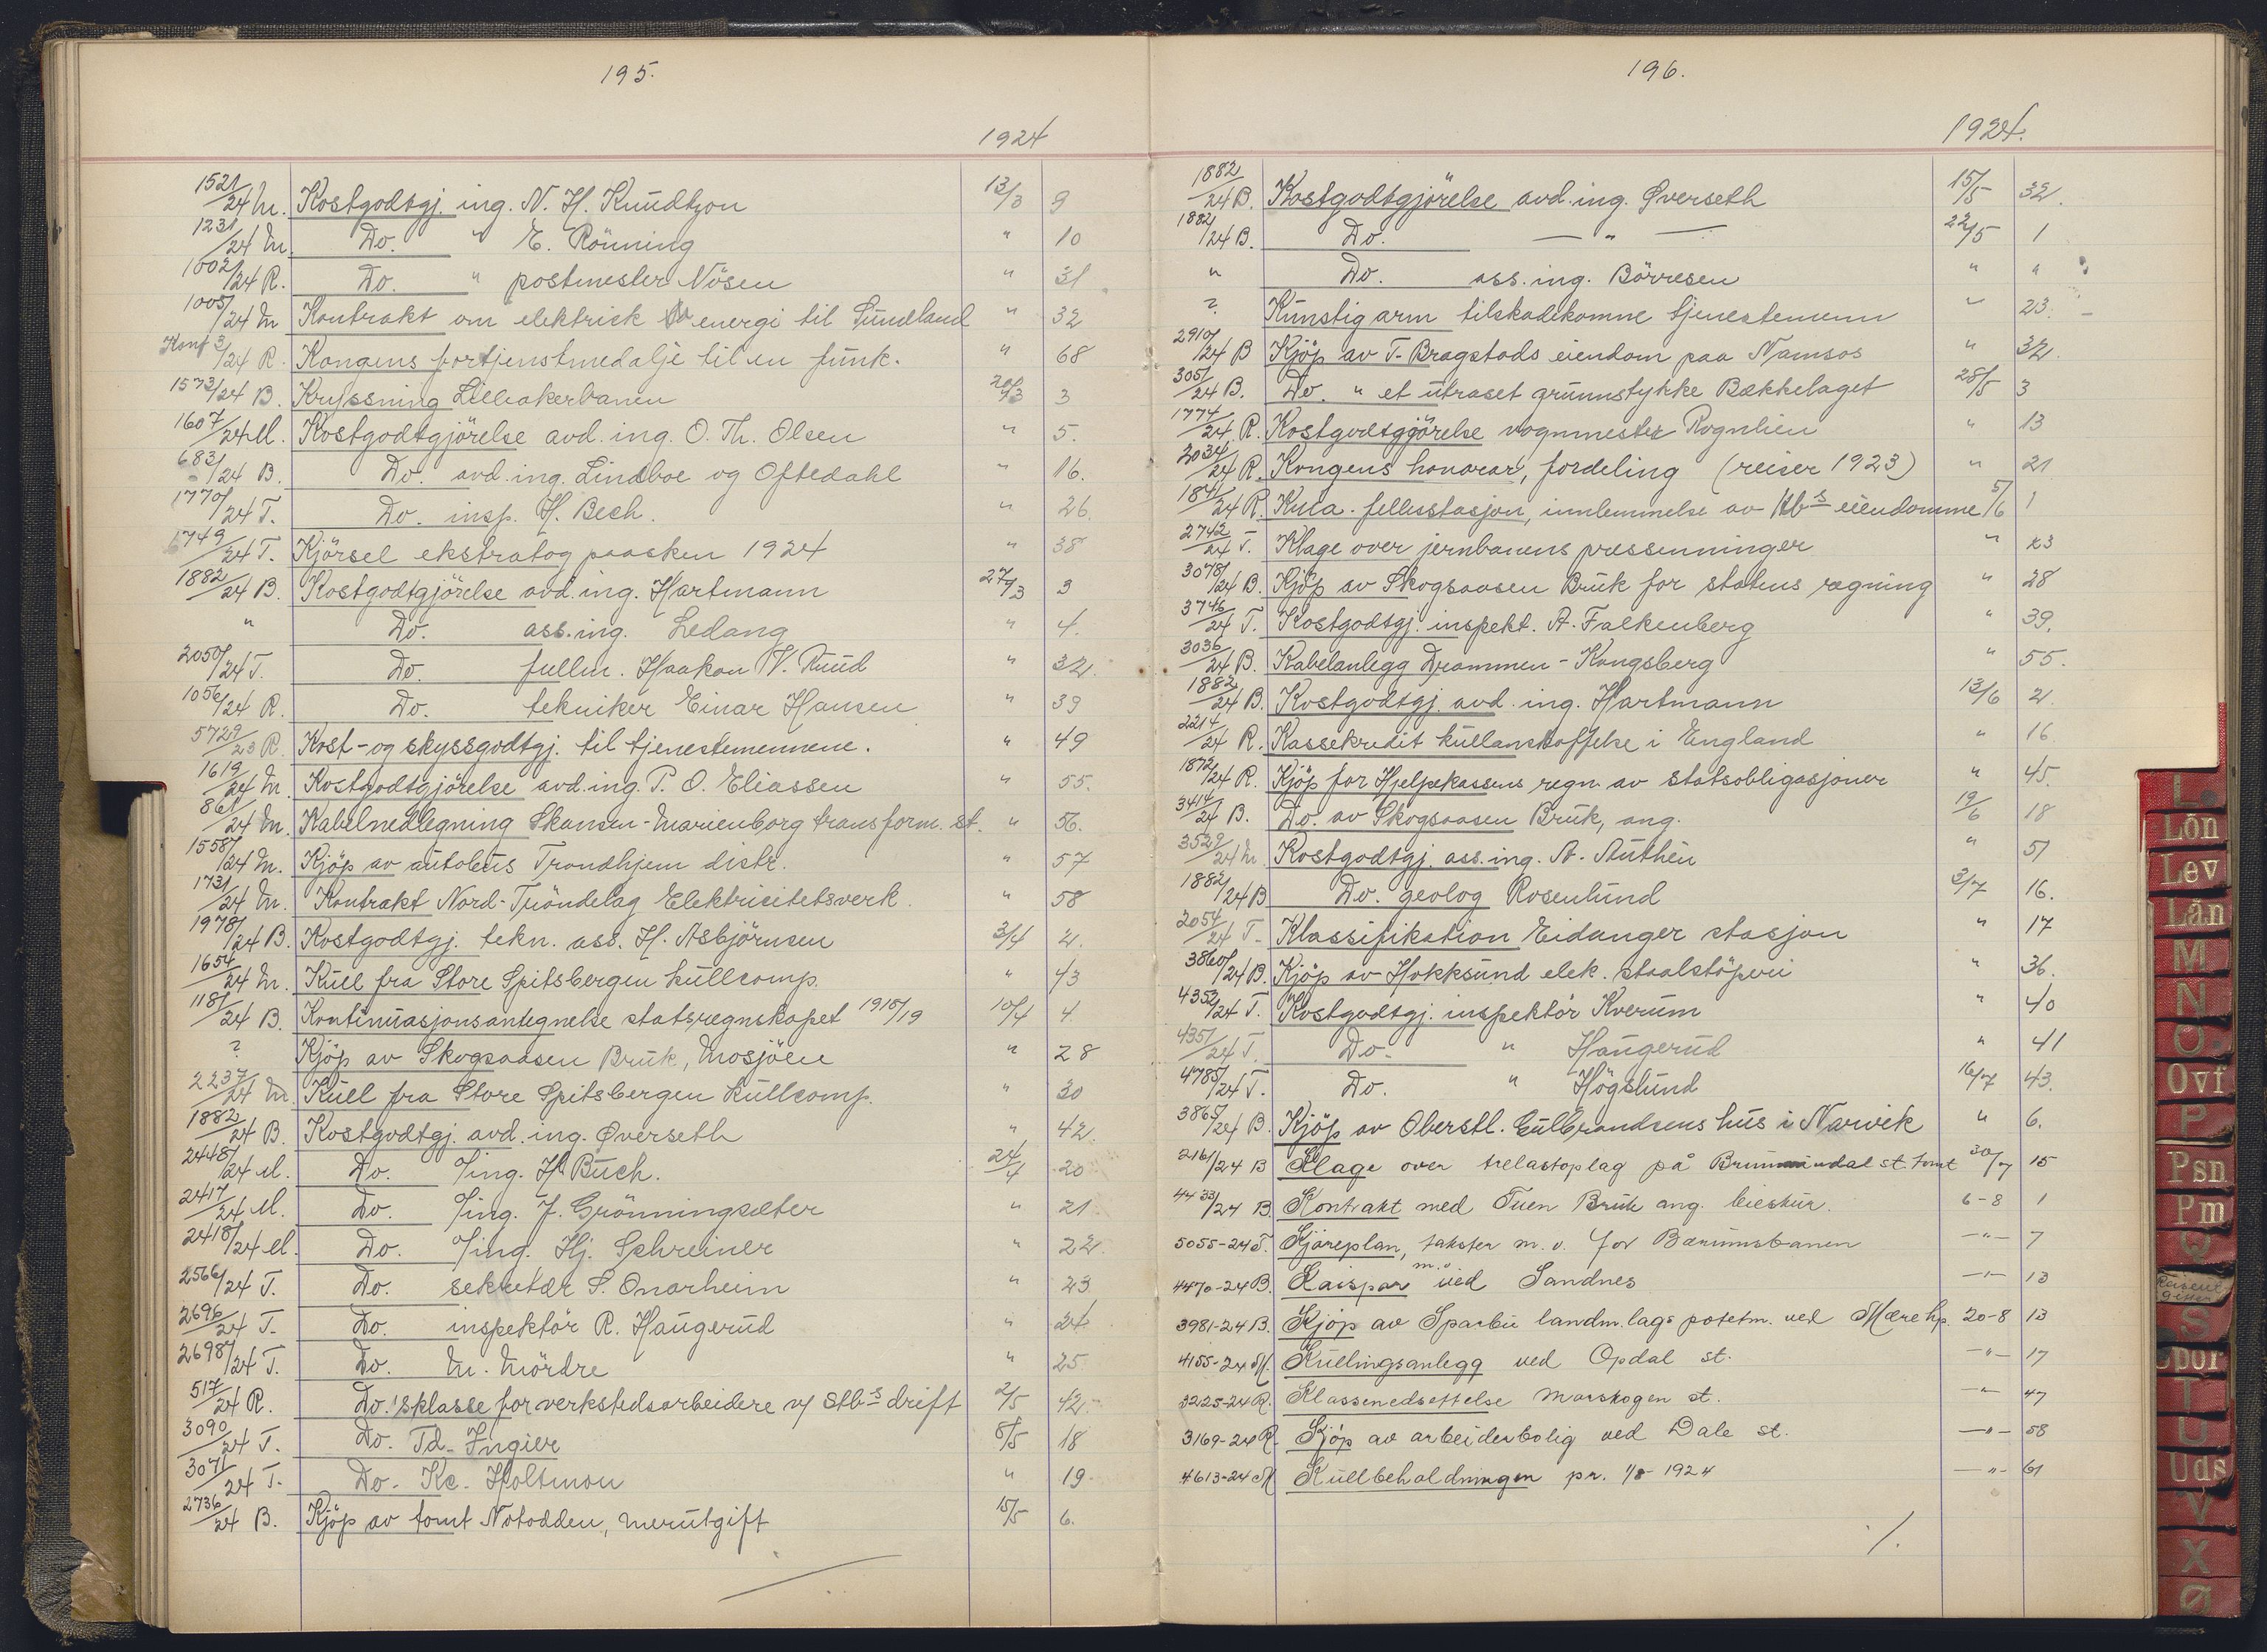 195.
1924
1521/24 M. Kostgodtgj. ing. N. H. Knudtzon 13/3 9
1231/24 M. Do. " E. Rönning " 10
1002/24 R. Do. " postmester Nösen " 31
1005/24 M Kontrakt om elektrisk energi til Sundland " 32
Konf 3/24 R. Kongens fortjenstmedalje til en funk. " 68
1573/24 B. Kryssning Lilleakerbanen 20/3 3
1607/24 M. Kostgodtgjörelse avd. ing. O. Th. Olsen " 5.
683/24 B. Do. avd. ing. Lindboe og Oftedahl " 16.
1770/24 T. Do. insp. H. Bech. " 26.
1749/24 T. Kjörsel ekstratog paasken 1924 " 38
1882/24 B. Kostgodtgjörelse avd. ing. Hartmann 27/3 3
" Do. ass. ing. Ledang " 4.
2050/24 T. Do. fullm. Haakon V. Ruud " 32.
1056/24 R. Do. tekniker Einar Hansen " 39
5729/23 R. Kost- og skyssgodtgj. til tjenestemennene. " 49
1619/24 M. Kostgodtgjörelse avd. ing. P. O. Eliassen " 55.
861/24 M. Kabelnedlegning Skansen-Marienborg transform. st. " 56.
1558/24 M. Kjöp av autobus Trondhjem distr. " 57
1731/24 M. Kontrakt Nord-Tröndelag Elektricitetsverk. " 58
1978/24 B. Kostgodtgj. tekn. ass. H. Asbjörnsen 3/4 2.
1654/24 M. Kull fra Store Spitsbergen kullcomp. " 43
1181/24 B. Kontinuasjonsantegnelse statsregnskapet 1918/19 10/4 4.
? Kjöp av Skogsaasen Bruk, Mosjöen " 28
2237/24 M. Kull fra Store Spitsbergen kullcomp. " 30
1882/24 B. Kostgodtgj. avd. ing. Øverseth " 42.
2448/24 M. Do. ing. H. Buch. 24/4 20
2417/24 M. Do. ing. J. Grönningsæter " 21
2418/24 M. Do. ing. Hj. Schreiner " 22.
2566/24 T. Do. sekretær S. Onarheim " 23
2696/24 T. Do. inspektör R. Haugerud " 24.
2698/24 T. Do. M. Mördre " 25
517/24 R. Do.'sklasse for verkstedsarbeidere v/ Stbs drift 2/5 42.
3090/24 T. Do. Td. Ingier 8/5 18
3071/24 T. Do. Kc. Holtmon " 19.
2736/24 B. Kjöp av tomt Notodden, merutgift 15/5 6.
196.
1924.
1882/24 B. Kostgodtgjörelse avd. ing. Øverseth 15/5 32.
1882/24 B. Do. — " — 22/5 1
" Do. ass. ing. Börresen " "
? Kunstig arm tilskadekomne tjenestemenn " 23.
2910/24 B Kjöp av T. Bragstads eiendom paa Namsos " 32.
3051/24 B. Do. " et utraset grunnstykke Bækkelaget 28/5 3
1774/24 R. Kostgodtgjörelse vognmester Rognlien " 13
2034/24 R. Kongens honorar, fordeling (reiser 1923) " 21
1841/24 R. Kna. fellesstasjon, innlemmelse av Hbs eiendomme 5/6 1
2742/24 T. Klage over jernbanens pressenninger " 23
3078/24 B. Kjöp av Skogsaasen Bruk for statens regning " 28
3746/24 T. Kostgodtgj. inspekt. A. Falkenberg " 39.
3036/24 B. Kabelanlegg Drammen - Kongsberg " 55.
1882/24 B. Kostgodtgj. avd. ing. Hartmann 13/6 2.
2214/24 R. Kassekredit kullanskaffelse i England " 16.
1872/24 R. Kjöp for Hjelpekassens regn. av statsobligasjoner " 45.
3414/24 B. Do. av Skogsaasen Bruk, ang. 19/6 18
3529/24 M. Kostgodtgj. ass. ing. A. Authén " 51
1882/24 B Do. geolog Rosenlund 3/7 16.
2054/24 T. Klassifikation Eidanger stasjon " 17
3860/24 B. Kjöp av Hokksund elek. staalstöperi " 36.
4352/24 T. Kostgodtgj. inspektör Kverum " 40
4351/24 T. Do. " Haugerud " 41
4785/24 T. Do. " Högslund 16/7 43.
3865/24 B. Kjöp av Oberstl. Gulbrandsens hus i Narvik " 6.
2161/24 B Klage over trelastoplag på Brumunddal st. tomt 30/7 15
4433/24 B. Kontrakt med Tuen Bruk ang. leieskur. 6-8 1
5055-24 T. Kjöreplan, takster m. v. for Bærumsbanen —"— 7
4470-24 B. Kaispor m.v. ved Sandnes —"— 13
3981-24 B. Kjöp av Sparbu landm. lags potetm. ved Mære hp. 20-8 13
4155-24 M. Kullingsanlegg ved Opdal st. —"— 17
3225-24 R. Klassenedsettelse Morskogen st. —"— 47
3169-24 R. Kjöp av arbeiderbolig ved Dale st. —"— 58
4613-24 M Kullbeholdningen pr. 1/8-1924 —"— 61
./.
L
Lön
Lev
Lån
M
N
O
Ovf
P
Psn
Pm
Q
S
Spor
T
U
Uds
V
X
Ø